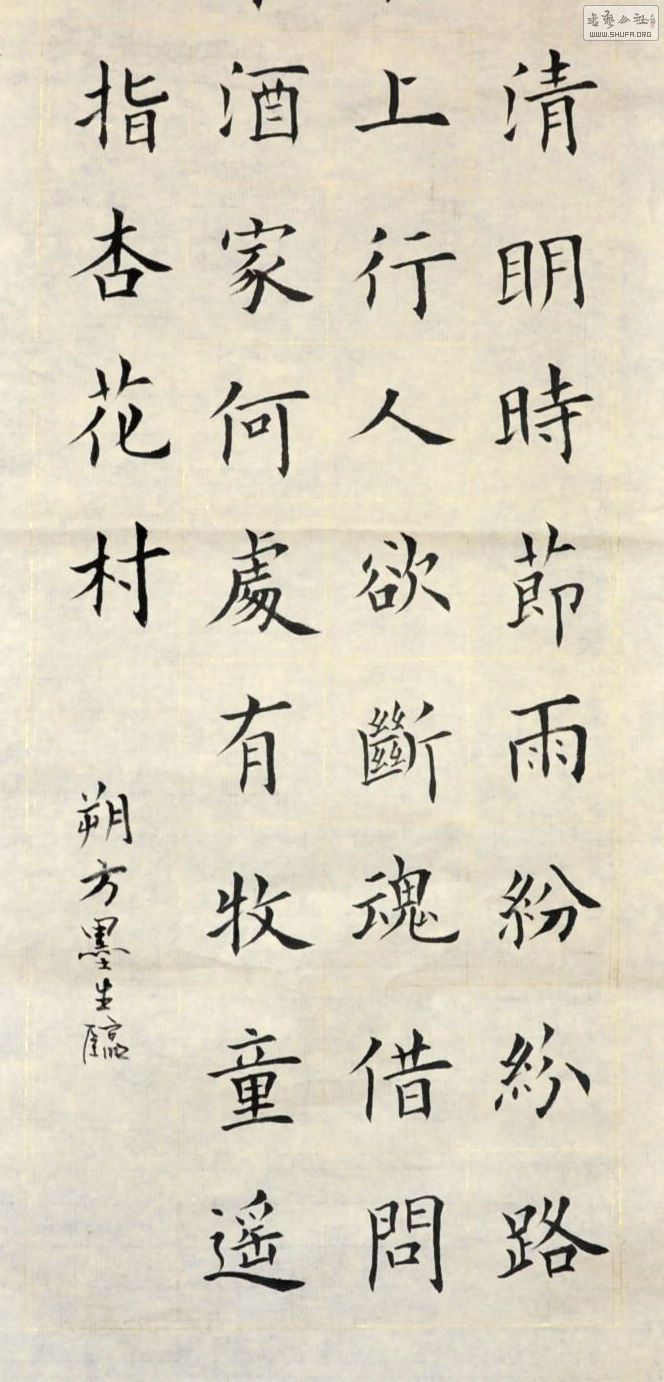 清明時節雨紛紛路
上行人欲斷魂借問
酒家何處有牧童遥
指杏花村
朔方墨生臨
書藝公社
WWW.SHUFA.ORG